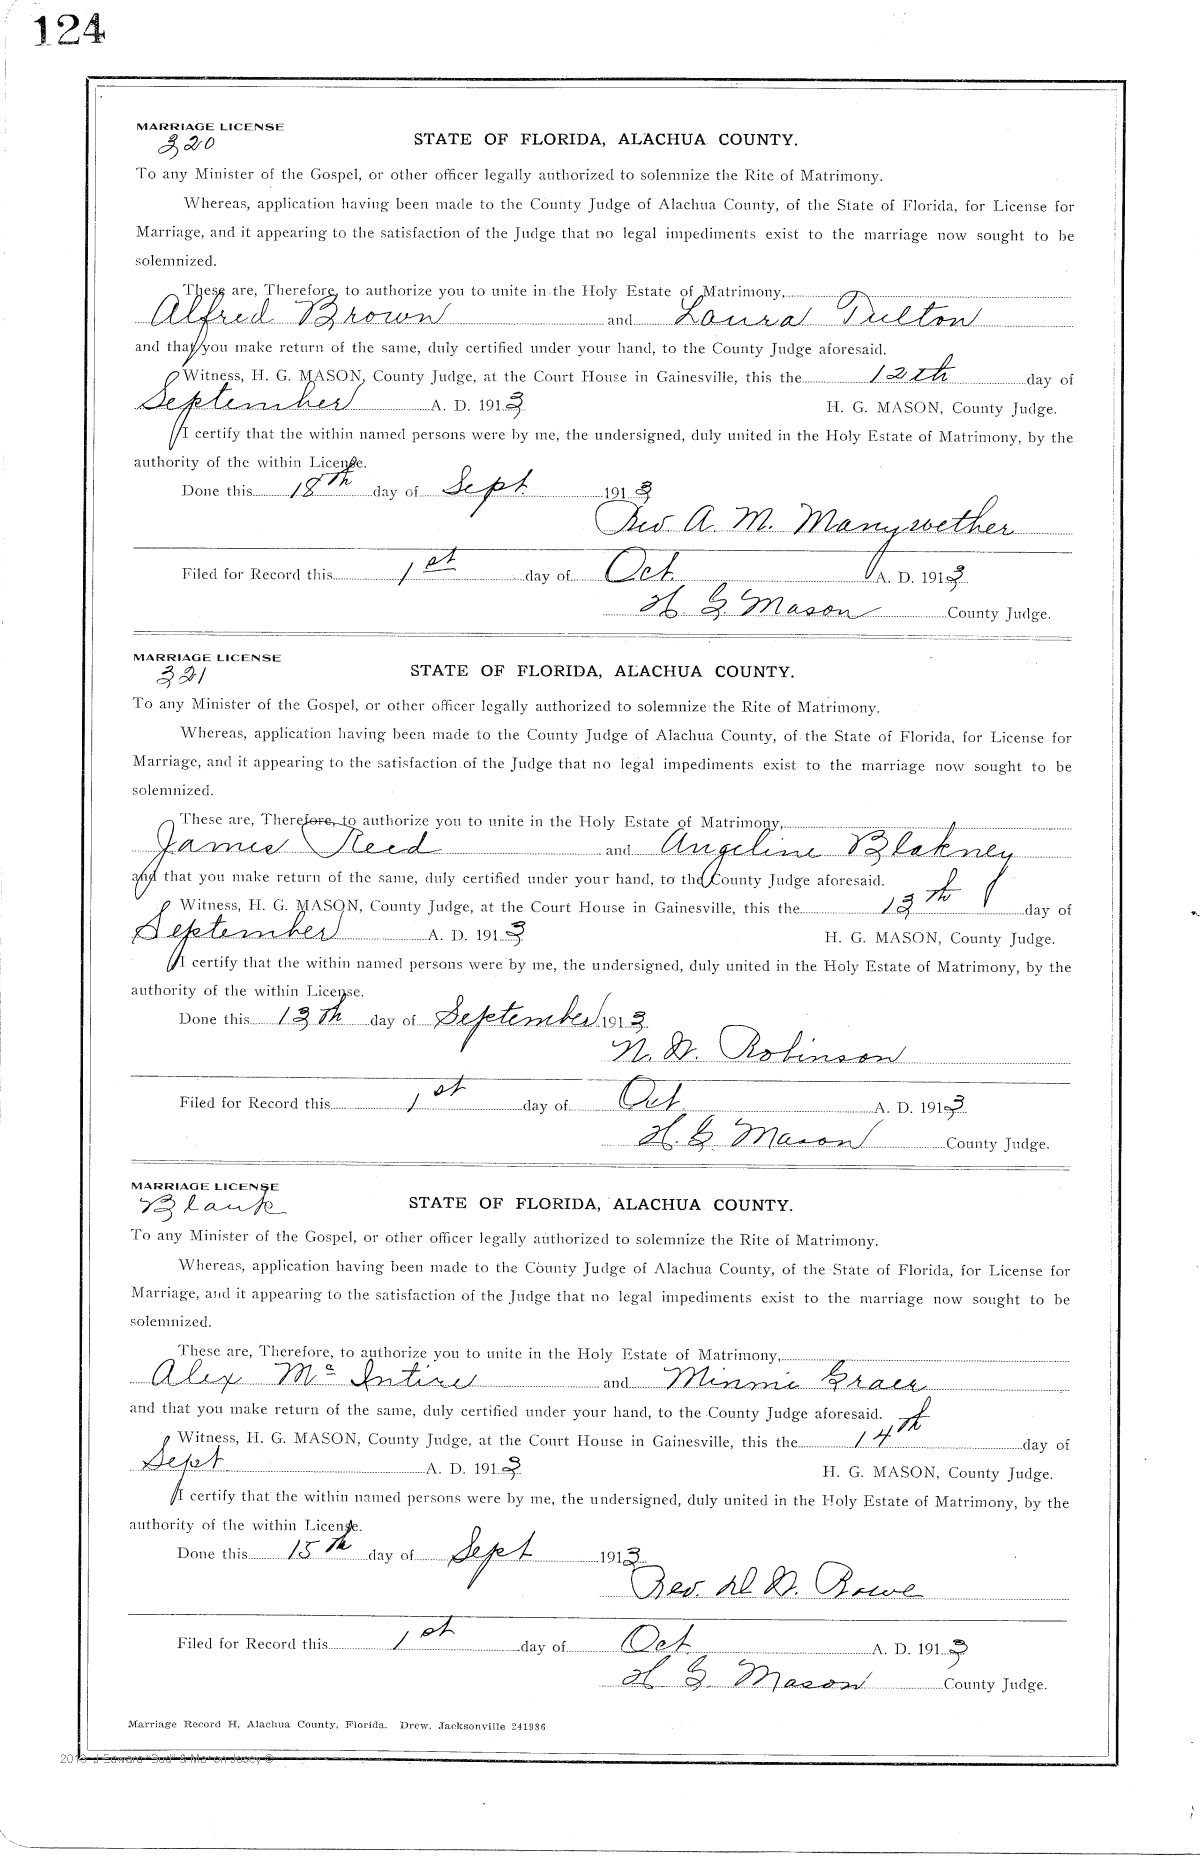 124
MARRIAGE LICENSE
320
STATE OF FLORIDA, ALACHUA COUNTY.
To any Minister of the Gospel, or other officer legally authorized to solemnize the Rite of Matrimony.
Whereas, application having been made to the County Judge of Alachua County, of the State of Florida, for License for
Marriage, and it appearing to the satisfaction of the Judge that no legal impediments exist to the marriage now sought to be
solemnized.
These are, Therefore, to authorize you to unite in the Holy Estate of Matrimony,
Alfred Brown and Laura Tulton
and that you make return of the same, duly certified under your hand, to the County Judge aforesaid.
Witness, H. G. MASON, County Judge, at the Court House in Gainesville, this the 12th day of
September A. D. 1913 H. G. MASON, County Judge.
I certify that the within named persons were by me, the undersigned, duly united in the Holy Estate of Matrimony, by the
authority of the within License.
Done this 18th day of Sept 1913
Rev A. M. Manywether
Filed for Record this 1st day of Oct A. D. 1913
H. G Mason County Judge.
MARRIAGE LICENSE
321
STATE OF FLORIDA, ALACHUA COUNTY.
To any Minister of the Gospel, or other officer legally authorized to solemnize the Rite of Matrimony.
Whereas, application having been made to the County Judge of Alachua County, of the State of Florida, for License for
Marriage, and it appearing to the satisfaction of the Judge that no legal impediments exist to the marriage now sought to be
solemnized.
These are, Therefore, to authorize you to unite in the Holy Estate of Matrimony,
James Reed and Angeline Blakney
and that you make return of the same, duly certified under your hand, to the County Judge aforesaid.
Witness, H. G. MASON, County Judge, at the Court House in Gainesville, this the 13th day of
September A. D. 1913 H. G. MASON, County Judge.
I certify that the within named persons were by me, the undersigned, duly united in the Holy Estate of Matrimony, by the
authority of the within License.
Done this 13th day of September 1913
N. W. Robinson
Filed for Record this 1st day of Oct A. D. 1913
H. G Mason County Judge.
MARRIAGE LICENSE
Blank
STATE OF FLORIDA, ALACHUA COUNTY.
To any Minister of the Gospel, or other officer legally authorized to solemnize the Rite of Matrimony.
Whereas, application having been made to the County Judge of Alachua County, of the State of Florida, for License for
Marriage, and it appearing to the satisfaction of the Judge that no legal impediments exist to the marriage now sought to be
solemnized.
These are, Therefore, to authorize you to unite in the Holy Estate of Matrimony,
Alex Mc Intire and Minnie
and that you make return of the same, duly certified under your hand, to the County Judge aforesaid.
Witness, H. G. MASON, County Judge, at the Court House in Gainesville, this the 14th day of
Sept A. D. 1913 H. G. MASON, County Judge.
I certify that the within named persons were by me, the undersigned, duly united in the Holy Estate of Matrimony, by the
authority of the within License.
Done this 15th day of Sept 1913
Rev. W. Rowe
Filed for Record this 1st day of Oct A. D. 1913
H G. Mason County Judge.
Marriage Record H, Alachua County, Florida. Drew, Jacksonville 241986